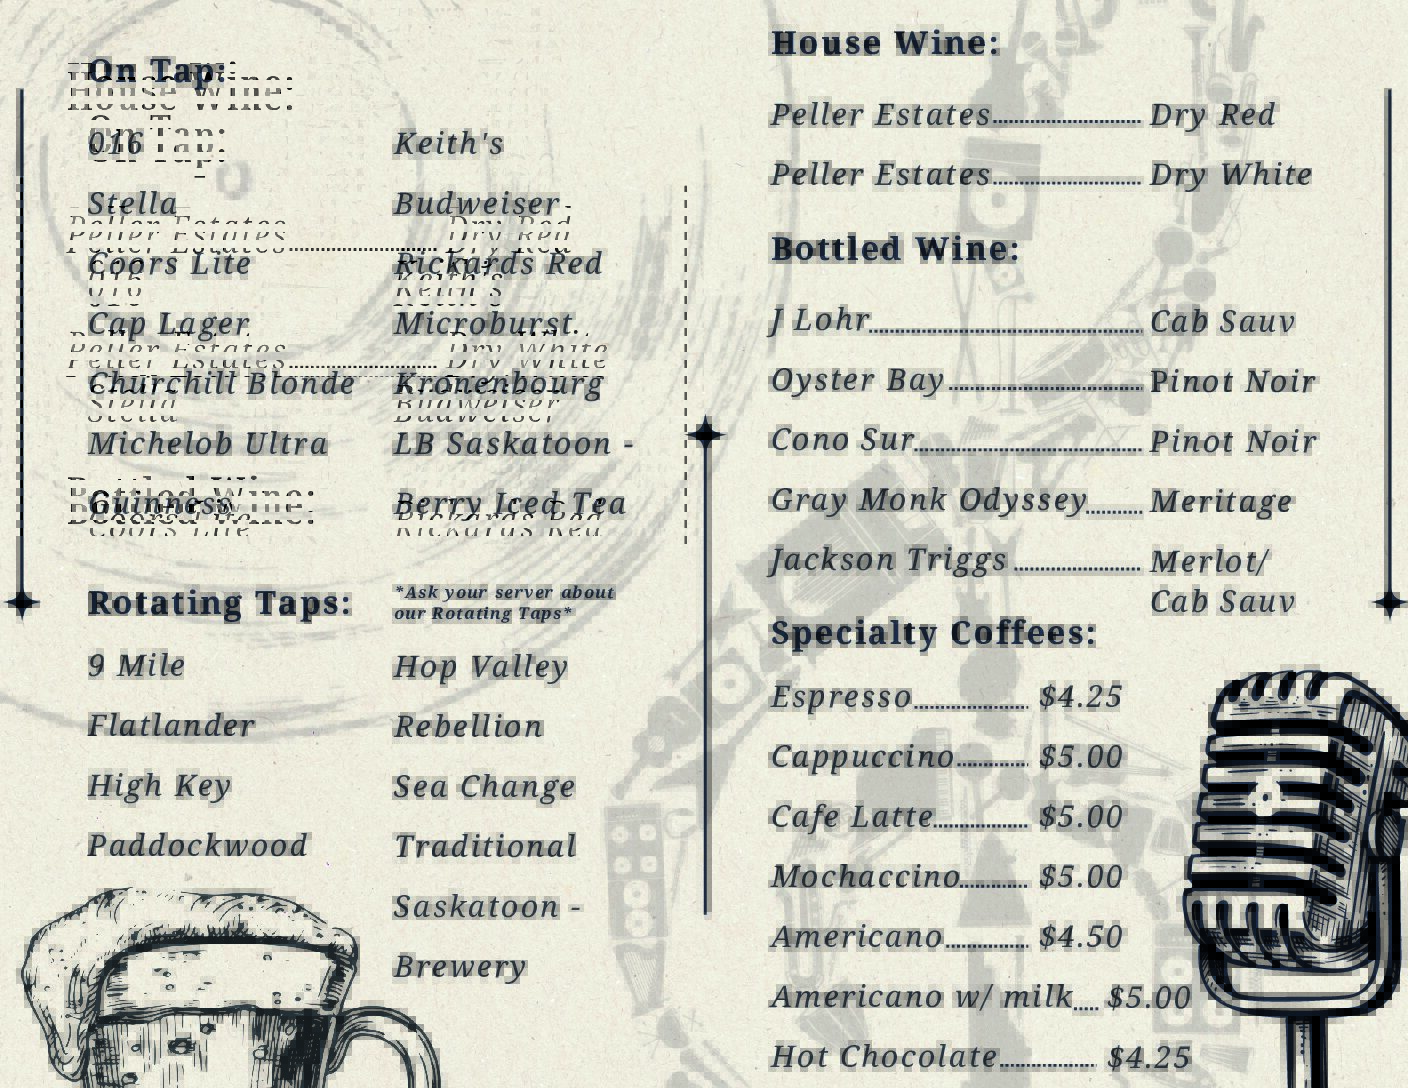 On Tap:
016 Keith's
Stella Budweiser
Coors Lite Rickards Red
Cap Lager Microburst
Churchill Blonde Kronenbourg
Michelob Ultra LB Saskatoon -
Guinness Berry Iced Tea
Rotating Taps: *Ask your server about
our Rotating Taps*
9 Mile Hop Valley
Flatlander Rebellion
High Key Sea Change
Paddockwood Traditional
Saskatoon -
Brewery
House Wine:
Peller Estates Dry Red
Peller Estates Dry White
Bottled Wine:
J Lohr Cab Sauv
Oyster Bay Pinot Noir
Cono Sur Pinot Noir
Gray Monk Odyssey Meritage
Jackson Triggs Merlot/
Cab Sauv
Specialty Coffees:
Espresso $4.25
Cappuccino $5.00
Cafe Latte $5.00
Mochaccino $5.00
Americano $4.50
Americano w/ milk $5.00
Hot Chocolate $4.25